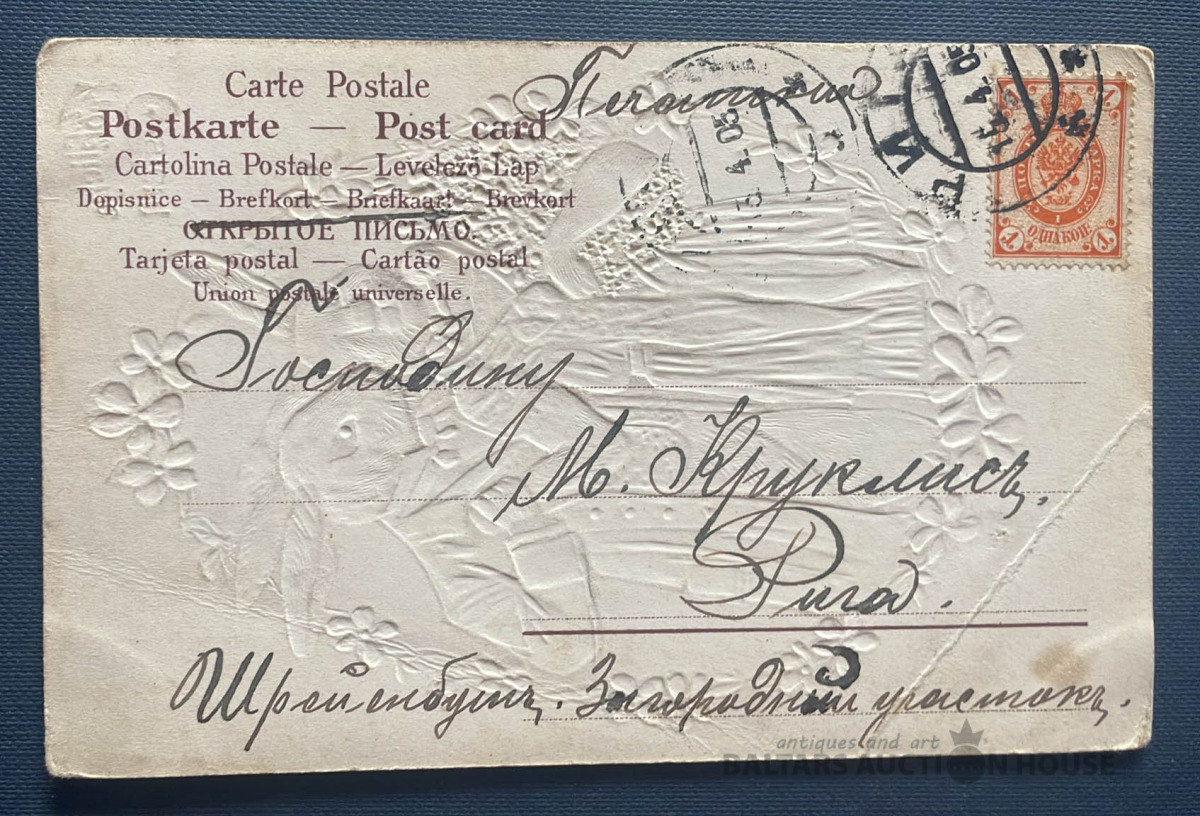 Печатное
Carte Postale
Postkarte — Post card
Cartolina Postale — Levelező-Lap
Dopisnice — Brefkort — Briefkaart — Brevkort
ОТКРЫТОЕ ПИСЬМО.
Tarjeta postal — Cartão postal
Union postale universelle.
4.05
15.4.05
МАРКА
1 ОДНА КОП. 1
Господину
М. Круклисъ.
Рига.
Шрейенбушъ. Загородный участокъ.
antiques and art
BALTARS AUCTION HOUSE